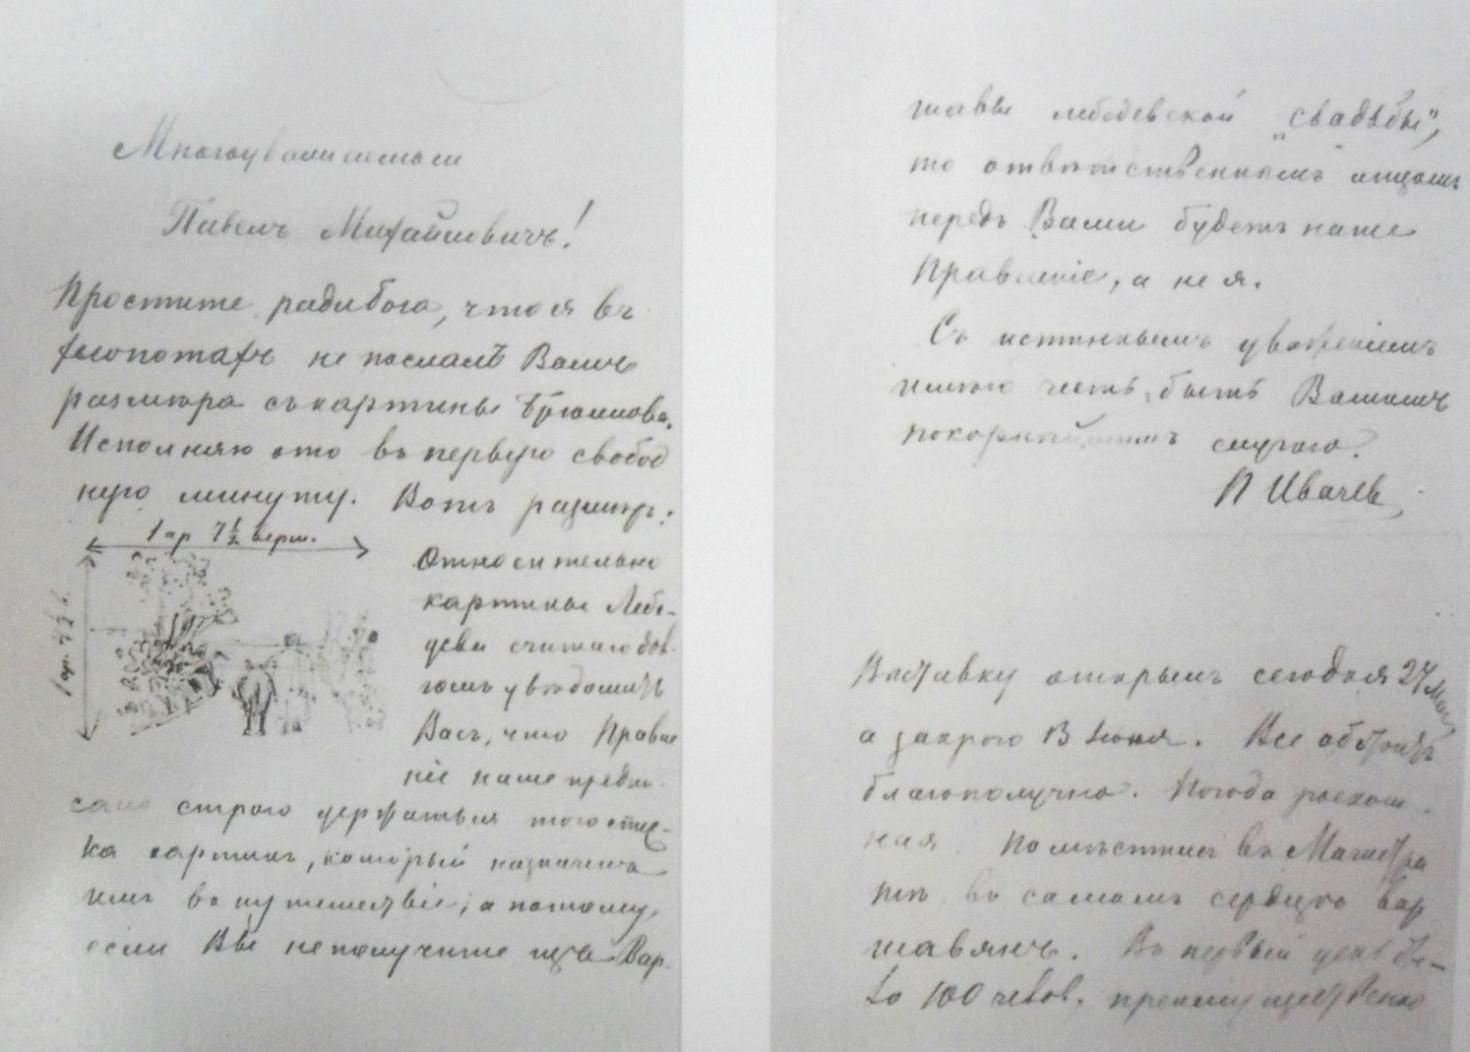 Многоуважаемый
Павелъ Михайловичъ!
Простите ради бога, что я въ
хлопотахъ не послалъ Вамъ
размѣра съ картины Брюллова.
Исполняю это въ первую свобод
ную минуту. Вотъ размѣръ:
1 ар 7 1/2 верш.
1 ар. 7 1/2 в.
Относительно
картины Лебе-
дева считаю дол
гомъ увѣдомить
Васъ, что Правле
ніе наше предпи
сало строго держаться того спис-
ка картинъ, который назначенъ
имъ въ путешествіе; а потому,
если Вы не получите изъ Вар
шавы лебедевской „свадьбы",
то отвѣтственнымъ лицомъ
передъ Вами будетъ наше
Правленіе, а не я.
Съ истиннымъ уваженіемъ
имѣю честь быть Вашимъ
покорнѣйшимъ слугою.
П Ивачев
Выставку открылъ сегодня 24 Мая,
а закрою 13 Іюня. Все обстоитъ
благополучно. Погода роскош
ная. Помѣстились въ Магистра
тѣ, въ самомъ сердцѣ вар
шавянъ. Въ первый день бы-
ло 100 челов. преимущественно